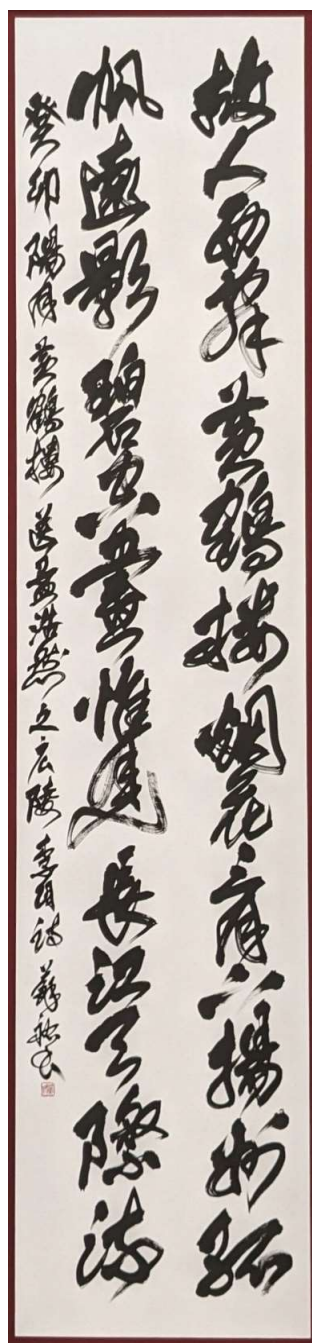 故人西辞黄鹤楼烟花三月下扬州孤
帆遠影碧空盡惟見長江天際流
癸卯陽月黄鶴楼送孟浩然之広陵李白詩